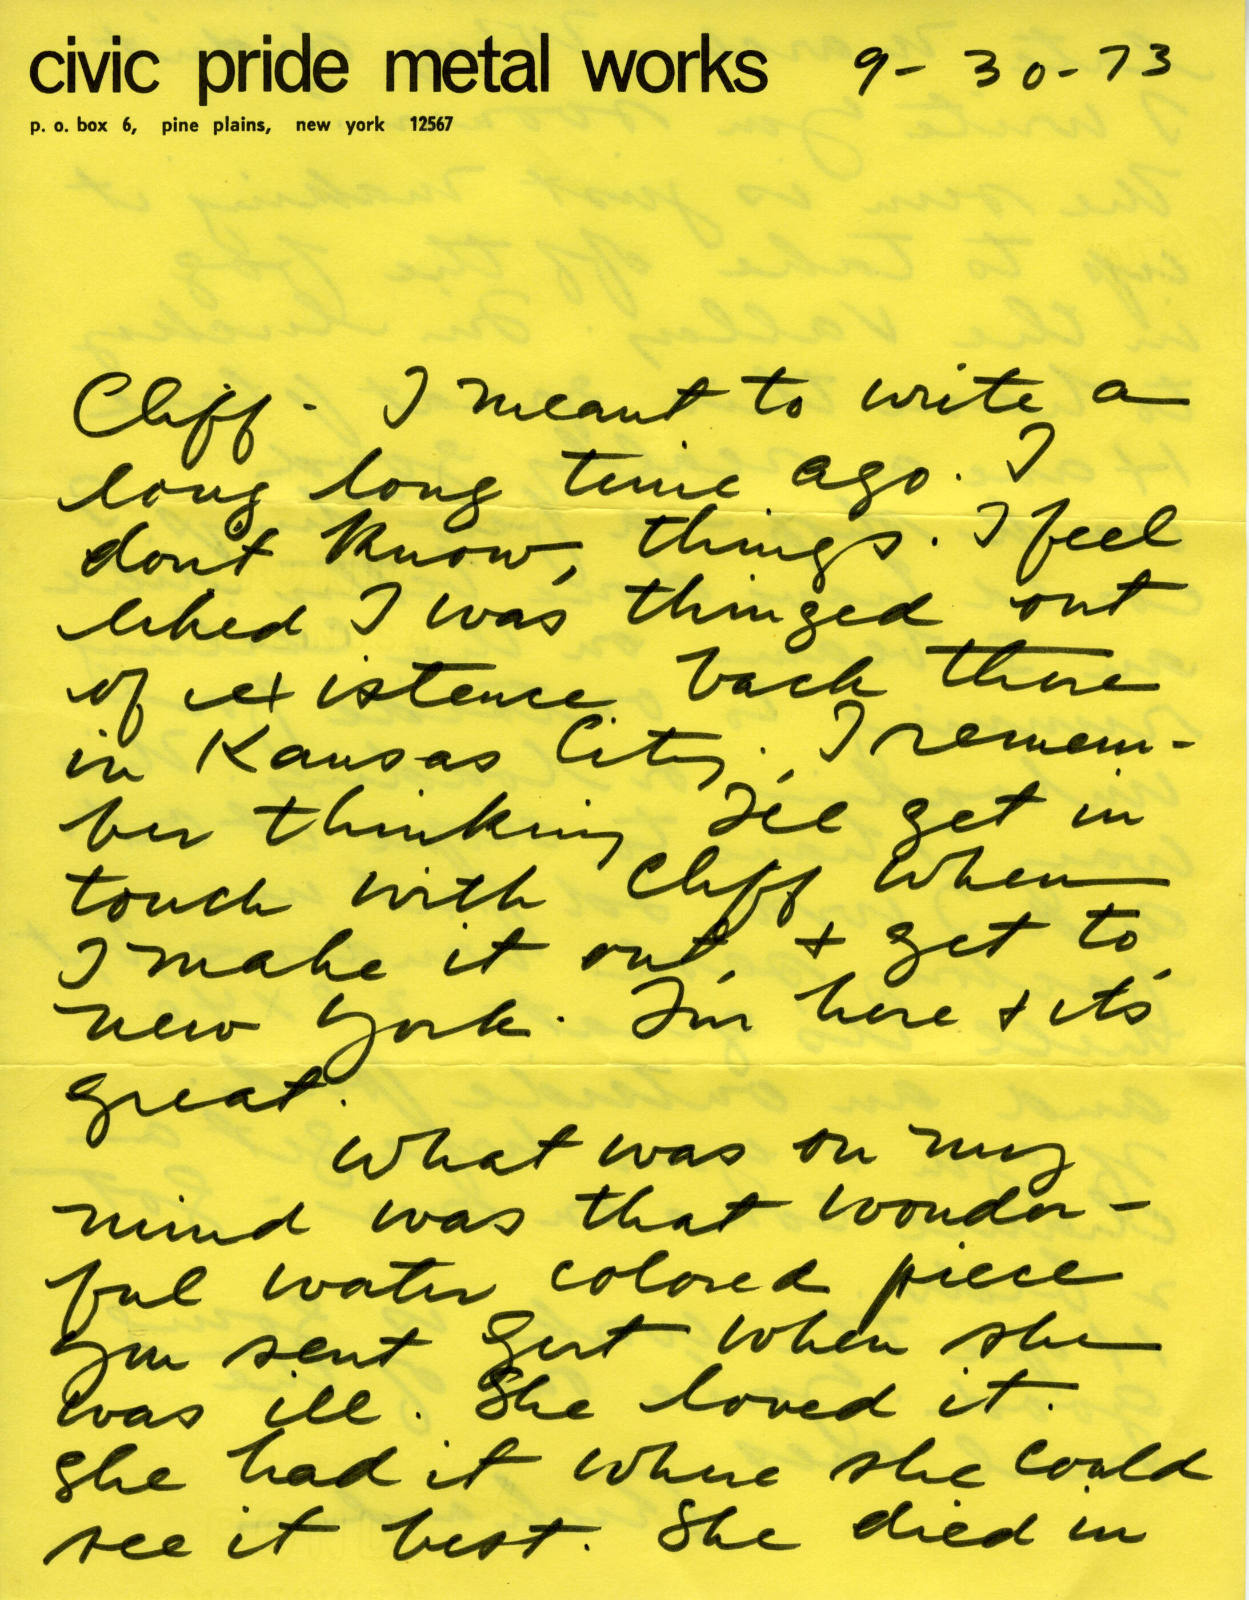 civic pride metal works 9-30-73
p. o. box 6, pine plains, new york 12567
Cliff - I meant to write a
long long time ago. I
dont know, things. I feel
liked I was thinged out
of existence back there
in Kansas City; I remem-
ber thinking I'll get in
touch with Cliff when
I make it out, + get to
new York. I'm here + it's
great.
What was on my
mind was that wonder-
ful water colored piece
you sent Gert when she
was ill. She loved it.
She had it where she could
see it best. She died in